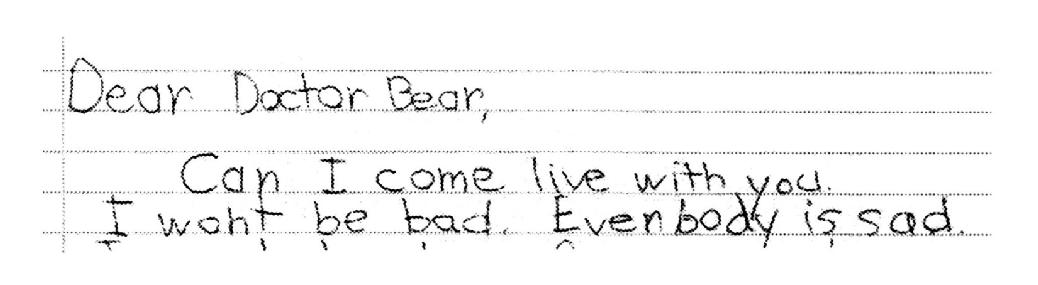 Dear Doctor Bear,
Can I come live with you.
I wont be bad. Evenbody is sad.